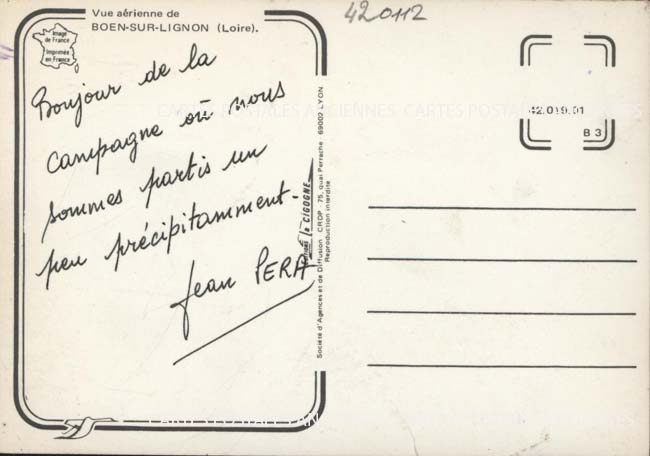 Vue aérienne de
BOEN-SUR-LIGNON (Loire).
420112
Image
de France
Imprimée
en France
Bonjour de la
campagne où nous
sommes partis un
peu précipitamment.
Jean PERA
EDITIONS la CIGOGNE
Société d'Agences et de Diffusion CRDP 75, quai Perrache 69002 LYON
Reproduction interdite
42.019.01
B 3
CARTES POSTALES ANCIENNES CARTES POSTALES